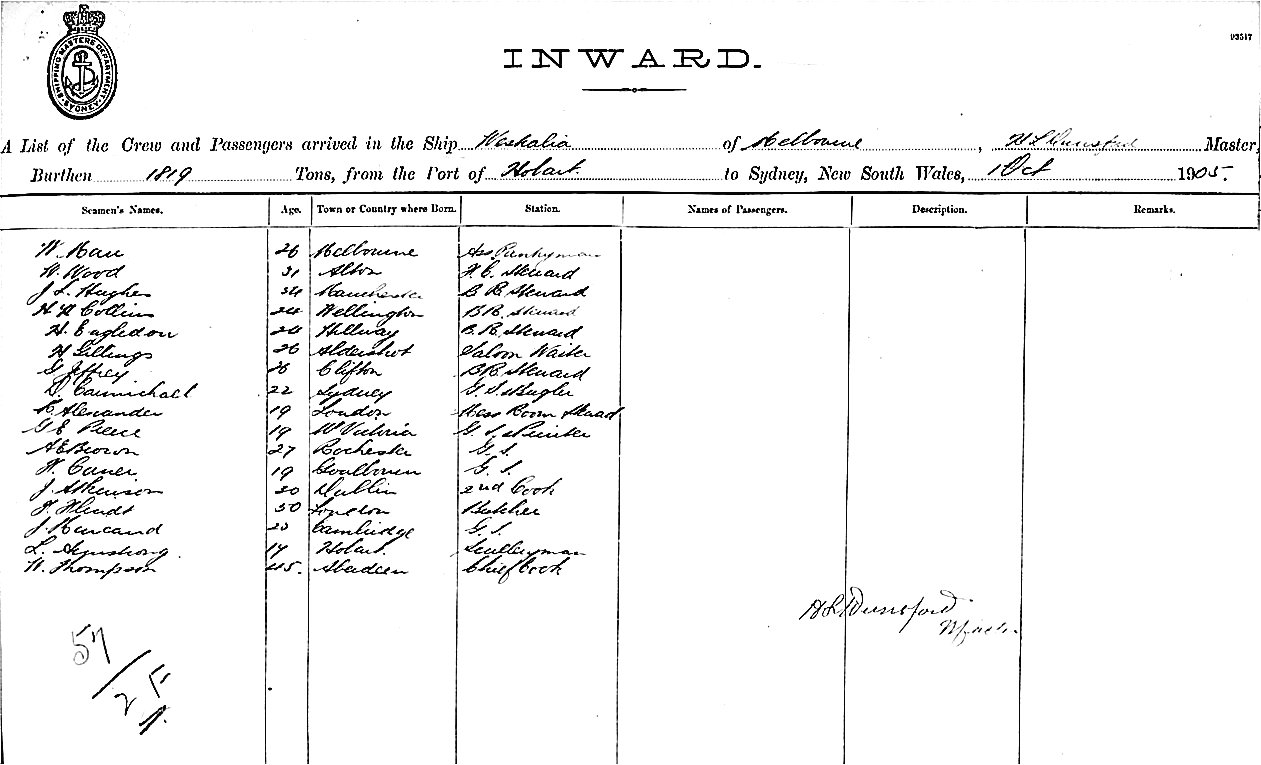 SHIPPING MASTERS DEPARTMENT. SYDNEY
93517
INWARD.
A List of the Crew and Passengers arrived in the Ship Westralia of Melbourne, H L Dunsford Master,
Burthen 1819 Tons, from the Port of Hobart. to Sydney, New South Wales, 1 Oct 1905.
Seamen's Names. Age. Town or Country where Born. Station. Names of Passengers. Description. Remarks.
W. 26 Melbourne Ass Pantryman
W. Wood 31 Alton F. C. Steward
J L Hughes 34 Manchester B R Steward
H W Collins 24 Wellington B R Steward
H. Eagledon 24 B. R. Steward
H Gittings 26 Aldershot Saloon Waiter
G Jeffrey 26 Clifton B R Steward
D. Carmichael 22 Sydney G. S. Bugler
R Alexander 19 London Mess Room Steward
G E Peece 19 W Victoria G. S. Printer
A E Brown 27 Rochester G S.
W. 19 Goulbourn G. S.
J. Atkinson 30 Dublin 2nd Cook
F. 50 London Butcher
J. 23 Cambridge G. S.
L. Armstrong 17 Hobart. Sculleryman
W. Thompson 45. Aberdeen Chief Cook
H L Dunsford
Master
57
/ 25